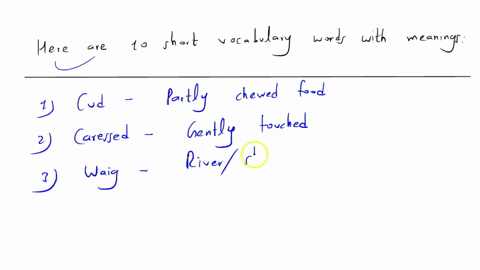 Here are 10 short vocabulary words with meanings:
1) Cud - Partly chewed food
2) Caressed - Gently touched
3) Waig - River/